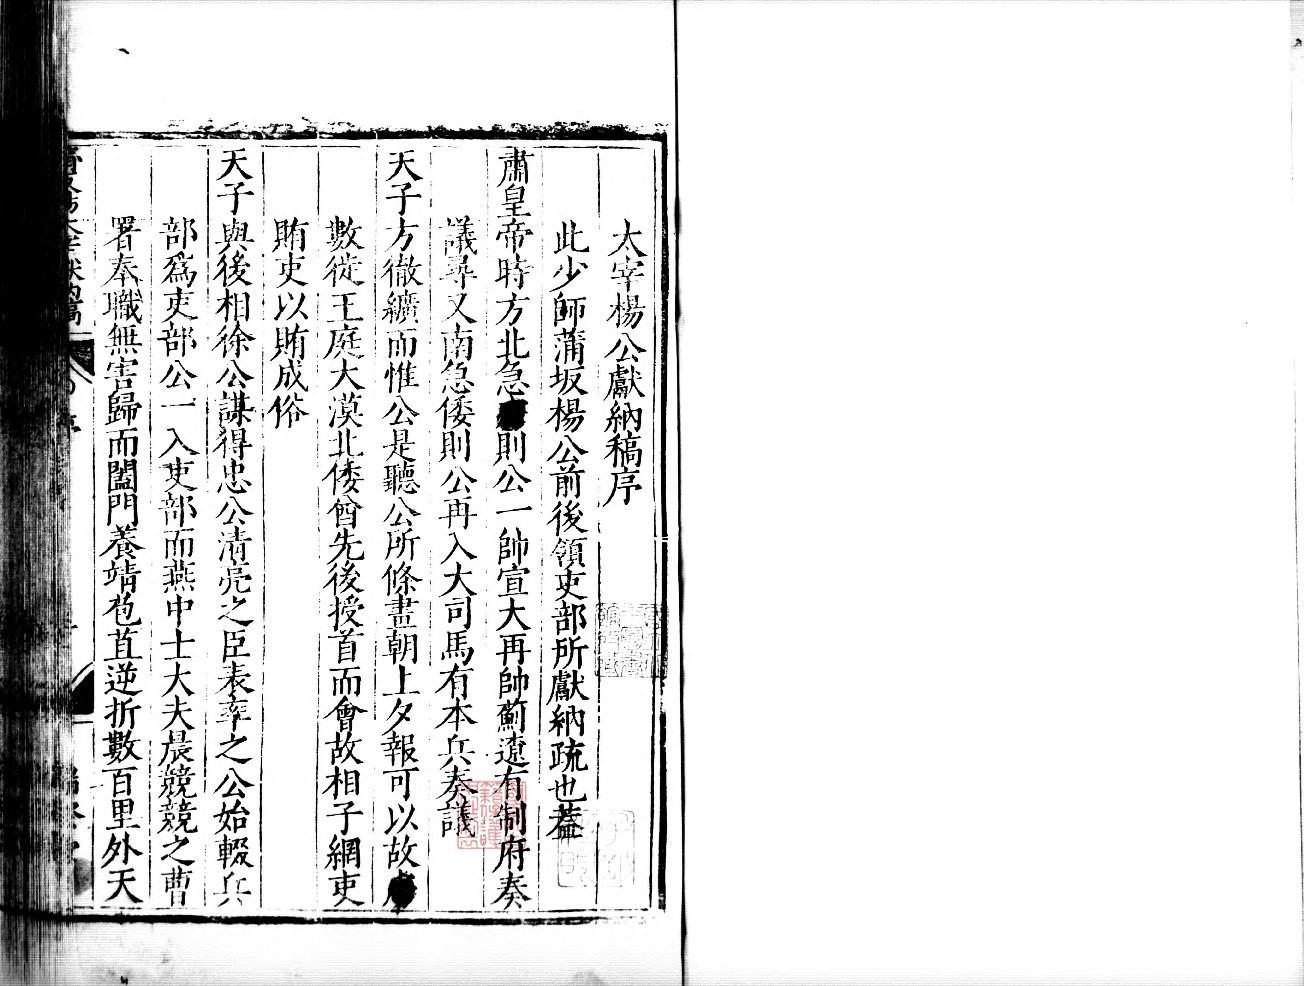 太宰楊公獻納稿序
此少師蒲坂楊公前後領吏部所獻納疏也蓋
肅皇帝時方北急則公一帥宣大再帥薊遼有制府奏
議尋又南急倭則公再入大司馬有本兵奏議
天子方徹纊而惟公是聽公所條畫朝上夕報可以故
數從王庭大漠北倭酋先後授首而會故相子網吏
賄吏以賄成俗
天子與後相徐公謀得忠公清亮之臣表率之公始輟兵
部為吏部公一入吏部而燕中士大夫晨競競之曹
署奉職無害歸而闔門養靖苞苴逆折數百里外天